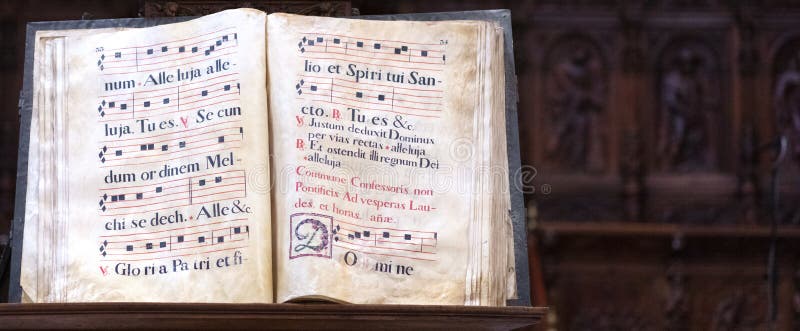 34
num. Alleluja alle
luja. Tu es. ℣ Secun
dum ordinem Mel
chisedech. Alle &c.
℣ Gloria Patri et fi-
35
lio et Spiritui San-
cto. ℟ Tu es &c.
℣ Justum deduxit Dominus
per vias rectas alleluja
℟ Et ostendit illi regnum Dei
alleluja
Commune Confessoris non
Pontificis Ad vesperas Lau-
des, et horas. añæ.
Domine
dreamstime